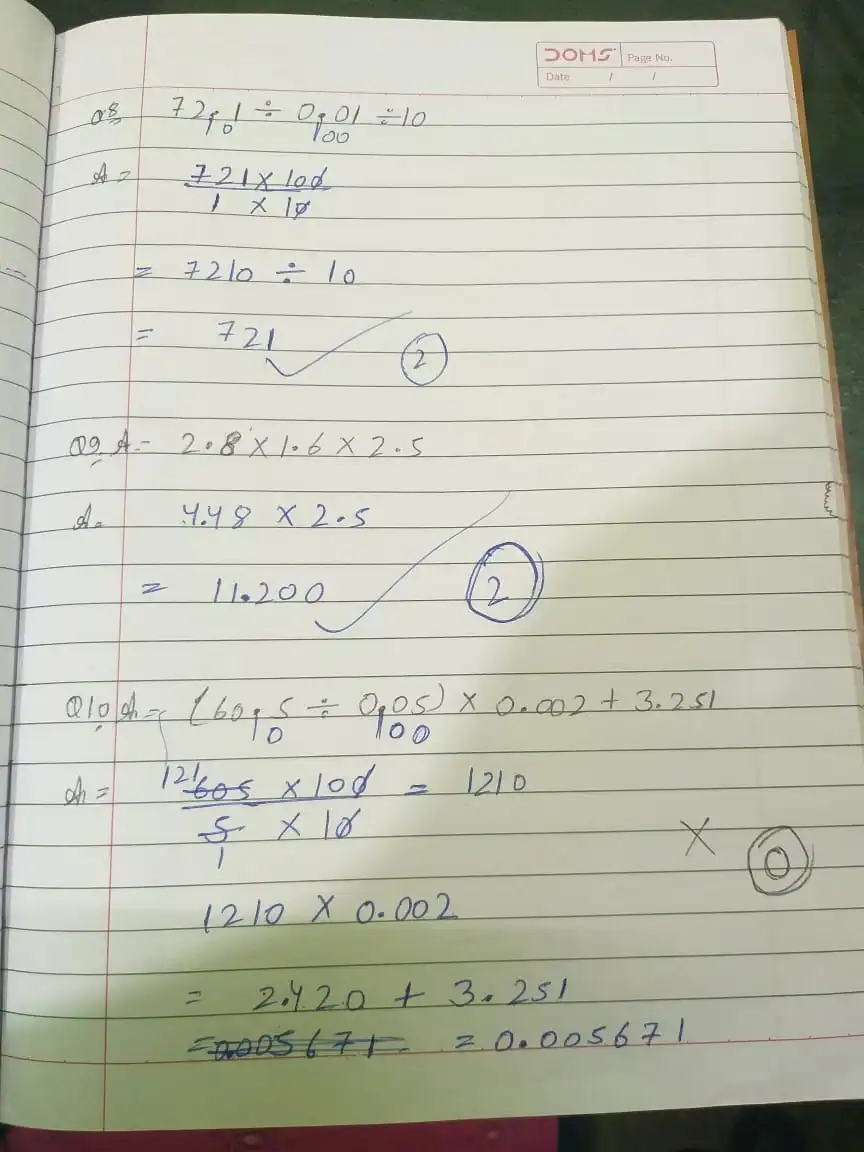 DOMS Page No.
Date / /
Q8 72.1 ÷ 0.01 ÷ 10
10 100
A = 721 × 100
1 × 10
= 7210 ÷ 10
= 721
2
Q9 A - 2.8 × 1.6 × 2.5
A = 4.48 × 2.5
= 11.200
2
Q10 A = (60.5 ÷ 0.05) × 0.002 + 3.251
10 100
A = 121 605 × 100 = 1210
5 × 10
1
× 0
1210 × 0.002
= 2.420 + 3.251
= 0.005671 = 0.005671